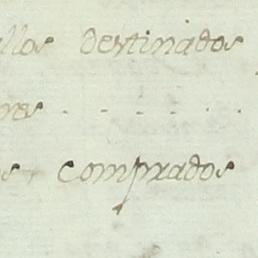 llos Destinados
res . . . . .
s comprados